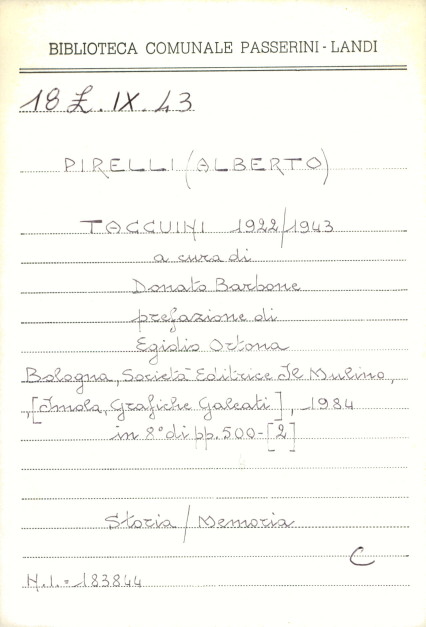 BIBLIOTECA COMUNALE PASSERINI-LANDI
18 £. IX. 43
PIRELLI (ALBERTO)
TACCUINI 1922/1943
a cura di
Donato Barbone
prefazione di
Egidio Ortona
Bologna, Società Editrice Il Mulino,
[Imola, Grafiche Galeati], 1984
in 8° di pp. 500-[2]
Storia / Memoria
C
N.I. = 183844